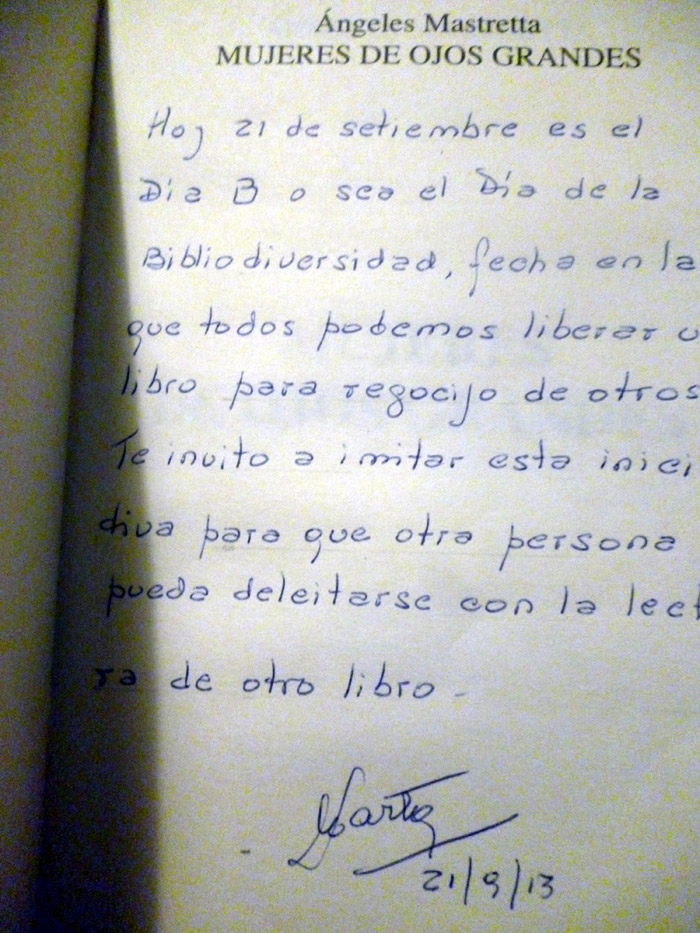 Ángeles Mastretta
MUJERES DE OJOS GRANDES
Hoy 21 de setiembre es el
Día B o sea el Día de la
Bibliodiversidad, fecha en la
que todos podemos liberar u
libro para regocijo de otros
Te invito a imitar esta inici
tiva para que otra persona
pueda deleitarse con la lect
ra de otro libro -
Marta
21/9/13